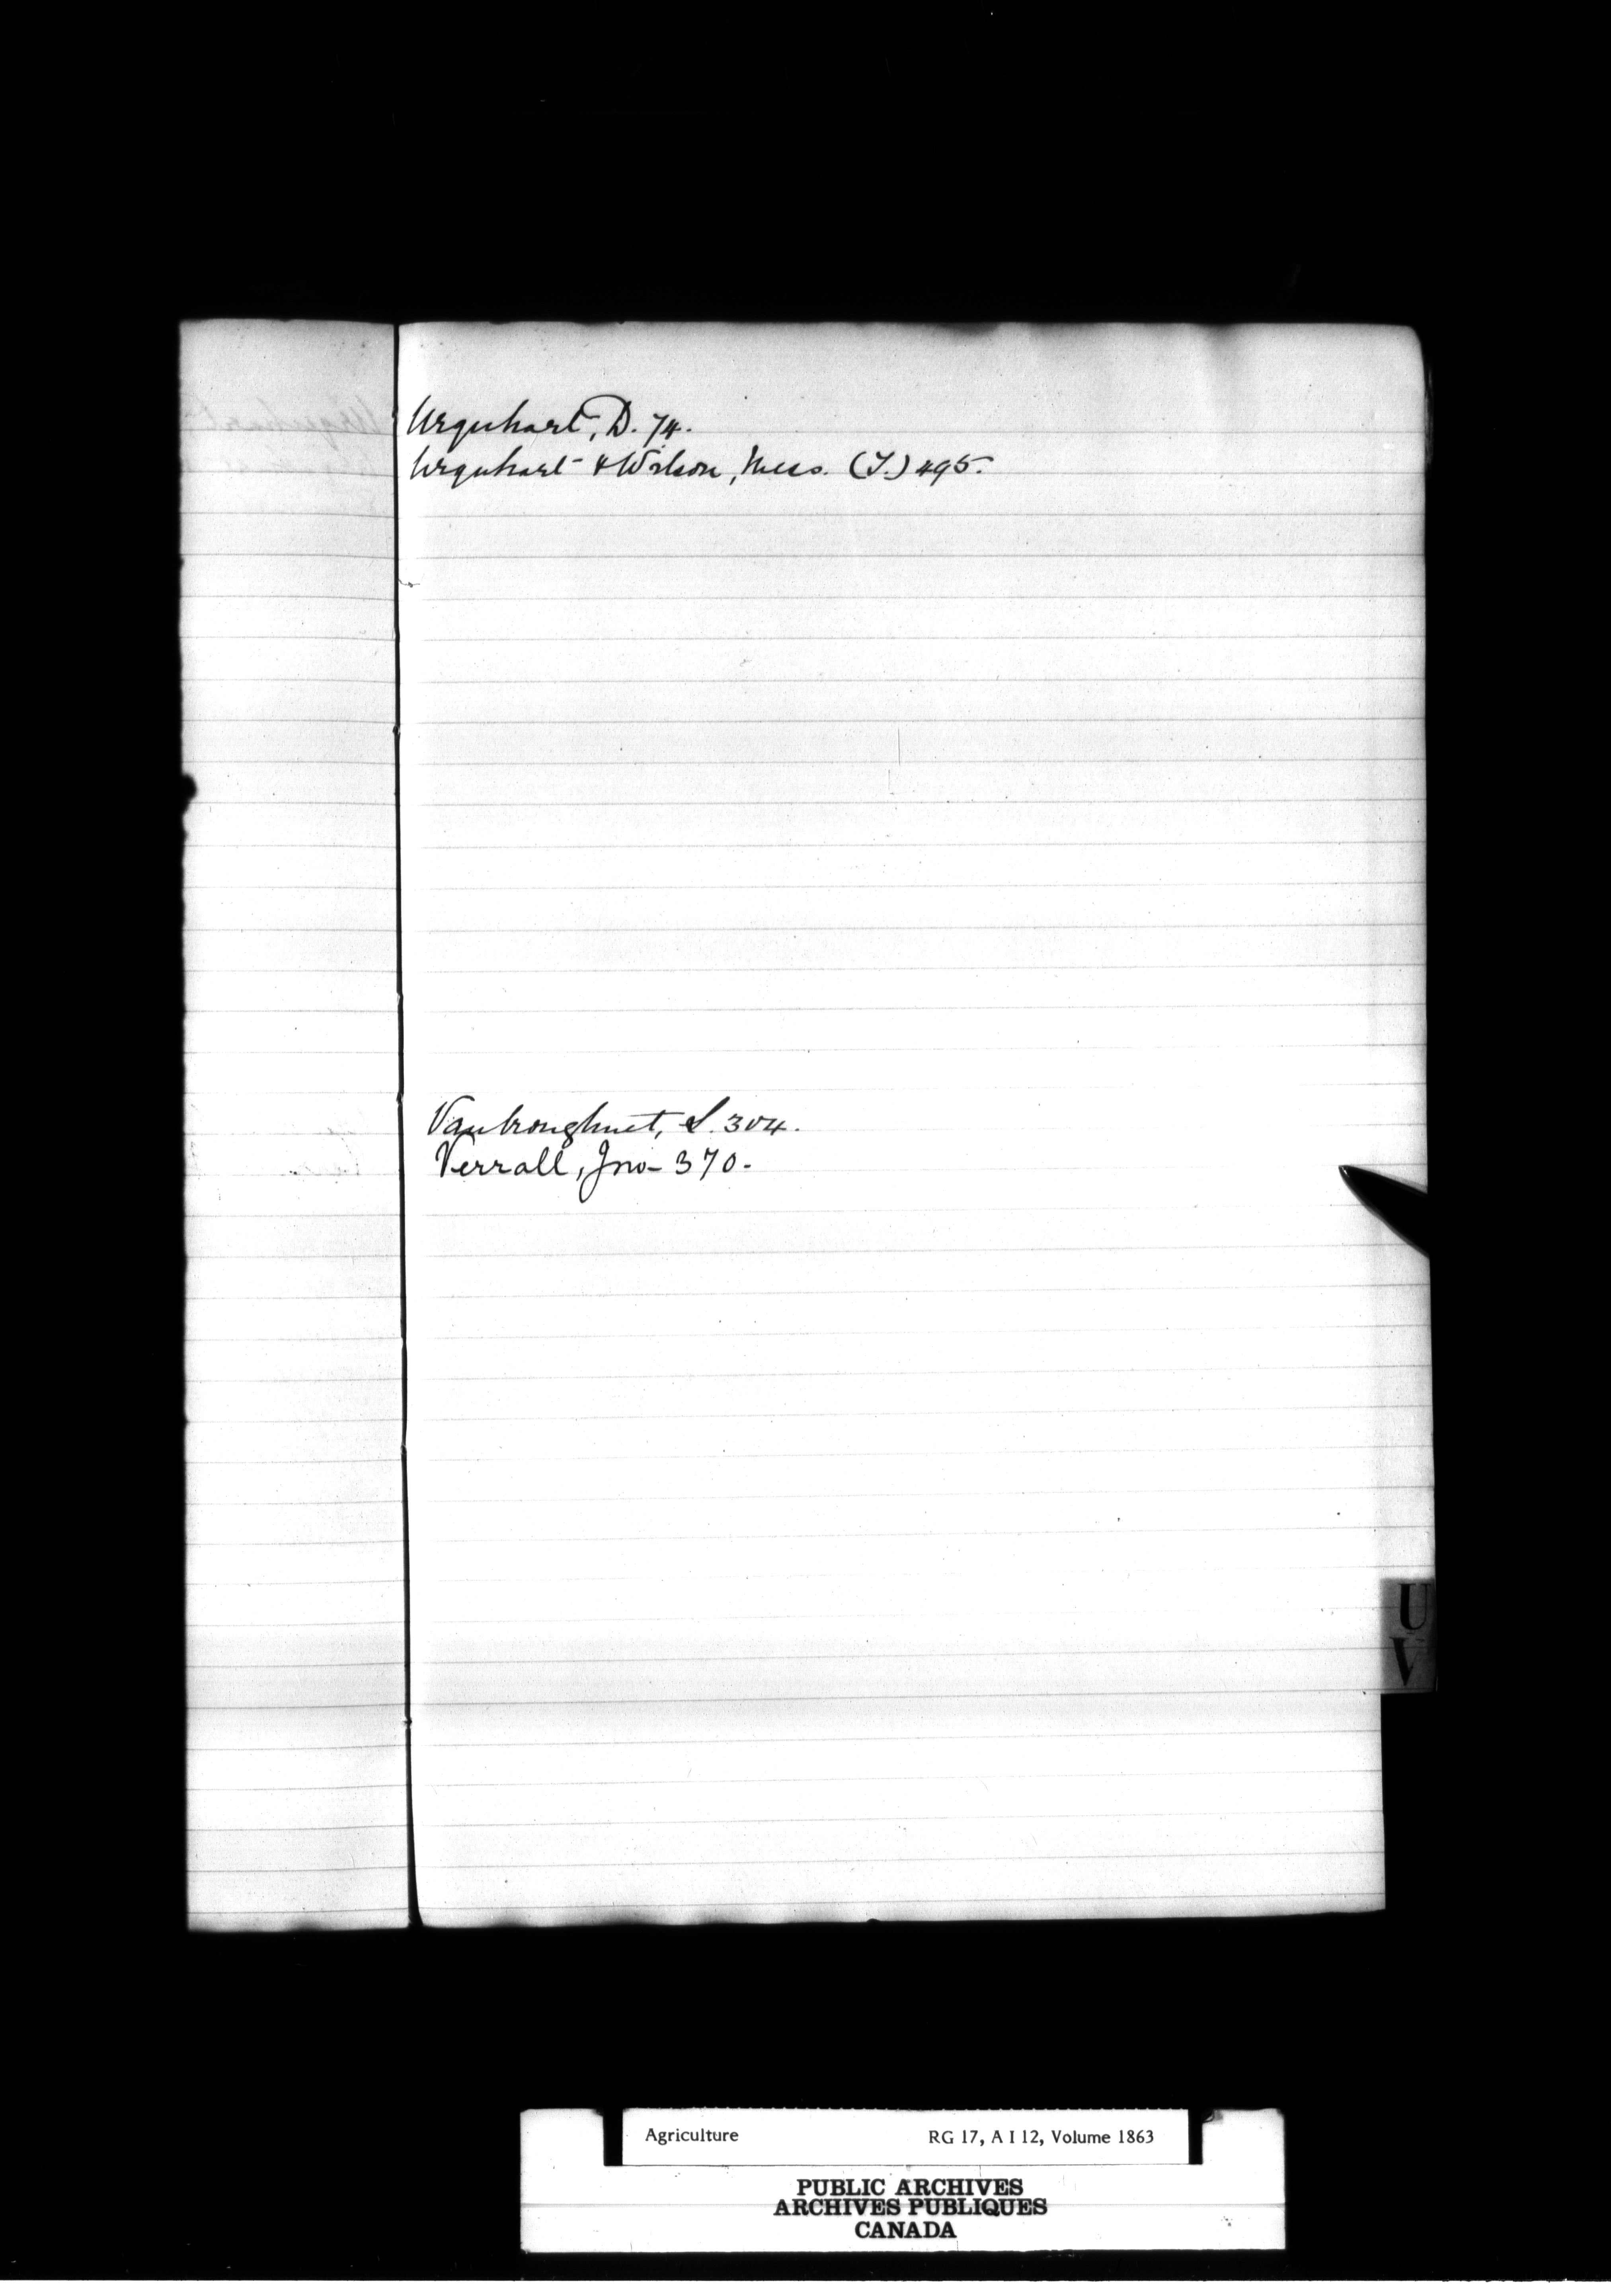 Urquhart, D. 74.
Urquhart & Wilson, Mess. (T.) 495.
Vanbroughnet, S. 304.
Verrall, Jno- 370.
U
V
Agriculture RG 17, A I 12, Volume 1863
PUBLIC ARCHIVES
ARCHIVES PUBLIQUES
CANADA